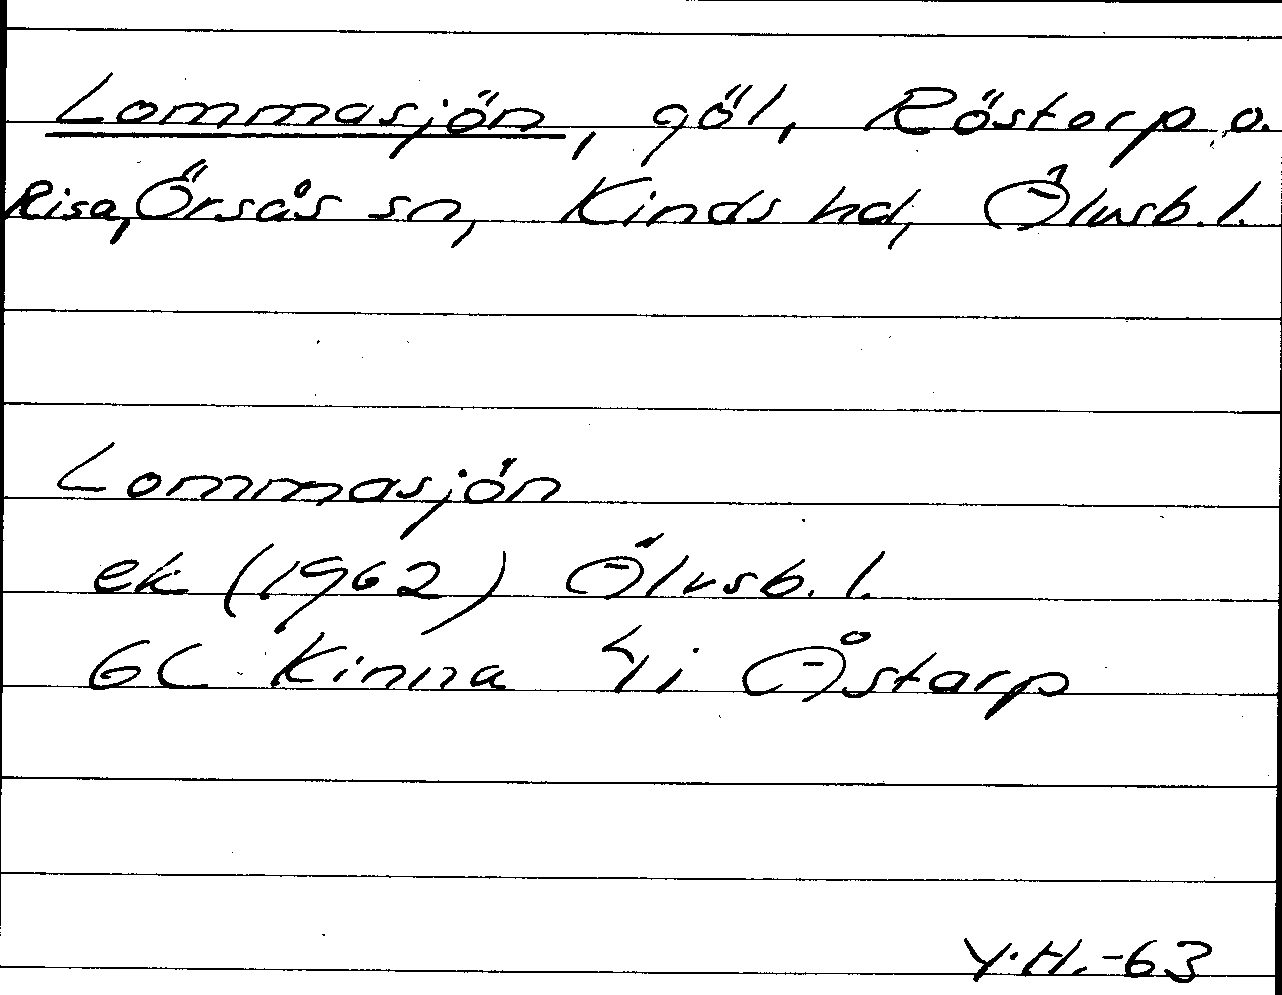 Lommasjön, göl, Röstorp o.
Risa, Örsås sn, Kinds hd, Älvsb. l.
Lommasjön
ek (1962) Älvsb. l.
6C Kinna 4i Åstarp
Y.H.-63